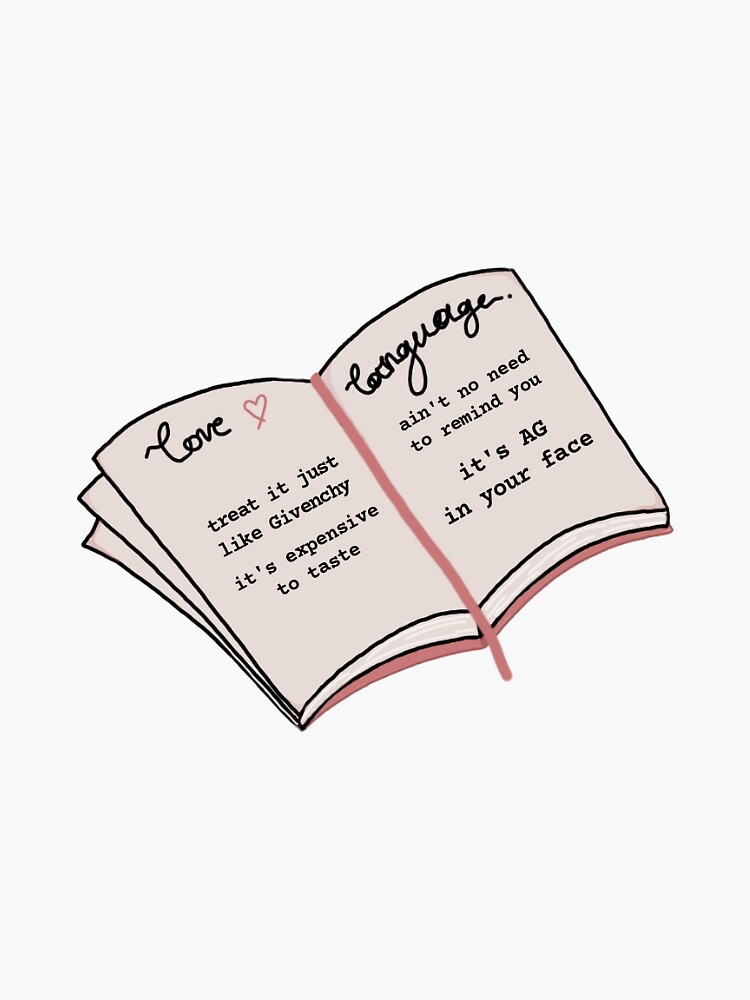 Love
treat it just
like Givenchy
it's expensive
to taste
Language.
ain't no need
to remind you
it's AG
in your face